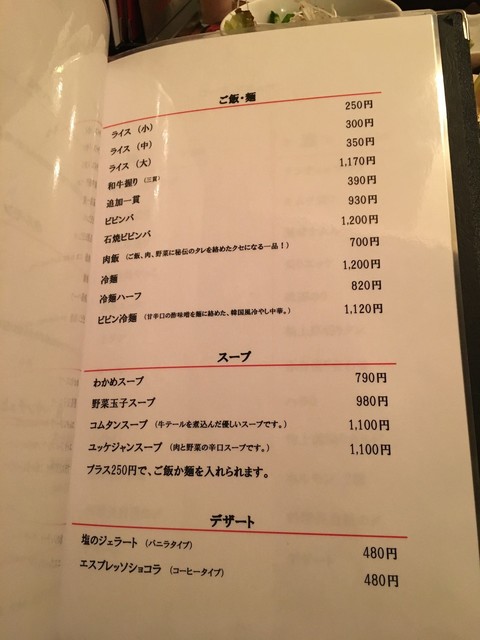 ご飯・麺
ライス（小） 250円
ライス（中） 300円
ライス（大） 350円
和牛握り（三貫） 1,170円
追加一貫 390円
ビビンバ 930円
石焼ビビンバ 1,200円
肉飯（ご飯、肉、野菜に秘伝のタレを絡めたクセになる一品！） 700円
冷麺 1,200円
冷麺ハーフ 820円
ビビン冷麺（甘辛口の酢味噌を麺に絡めた、韓国風冷やし中華。） 1,120円
スープ
わかめスープ 790円
野菜玉子スープ 980円
コムタンスープ（牛テールを煮込んだ優しいスープです。） 1,100円
ユッケジャンスープ（肉と野菜の辛口スープです。） 1,100円
プラス250円で、ご飯か麺を入れられます。
デザート
塩のジェラート（バニラタイプ） 480円
エスプレッソショコラ（コーヒータイプ） 480円